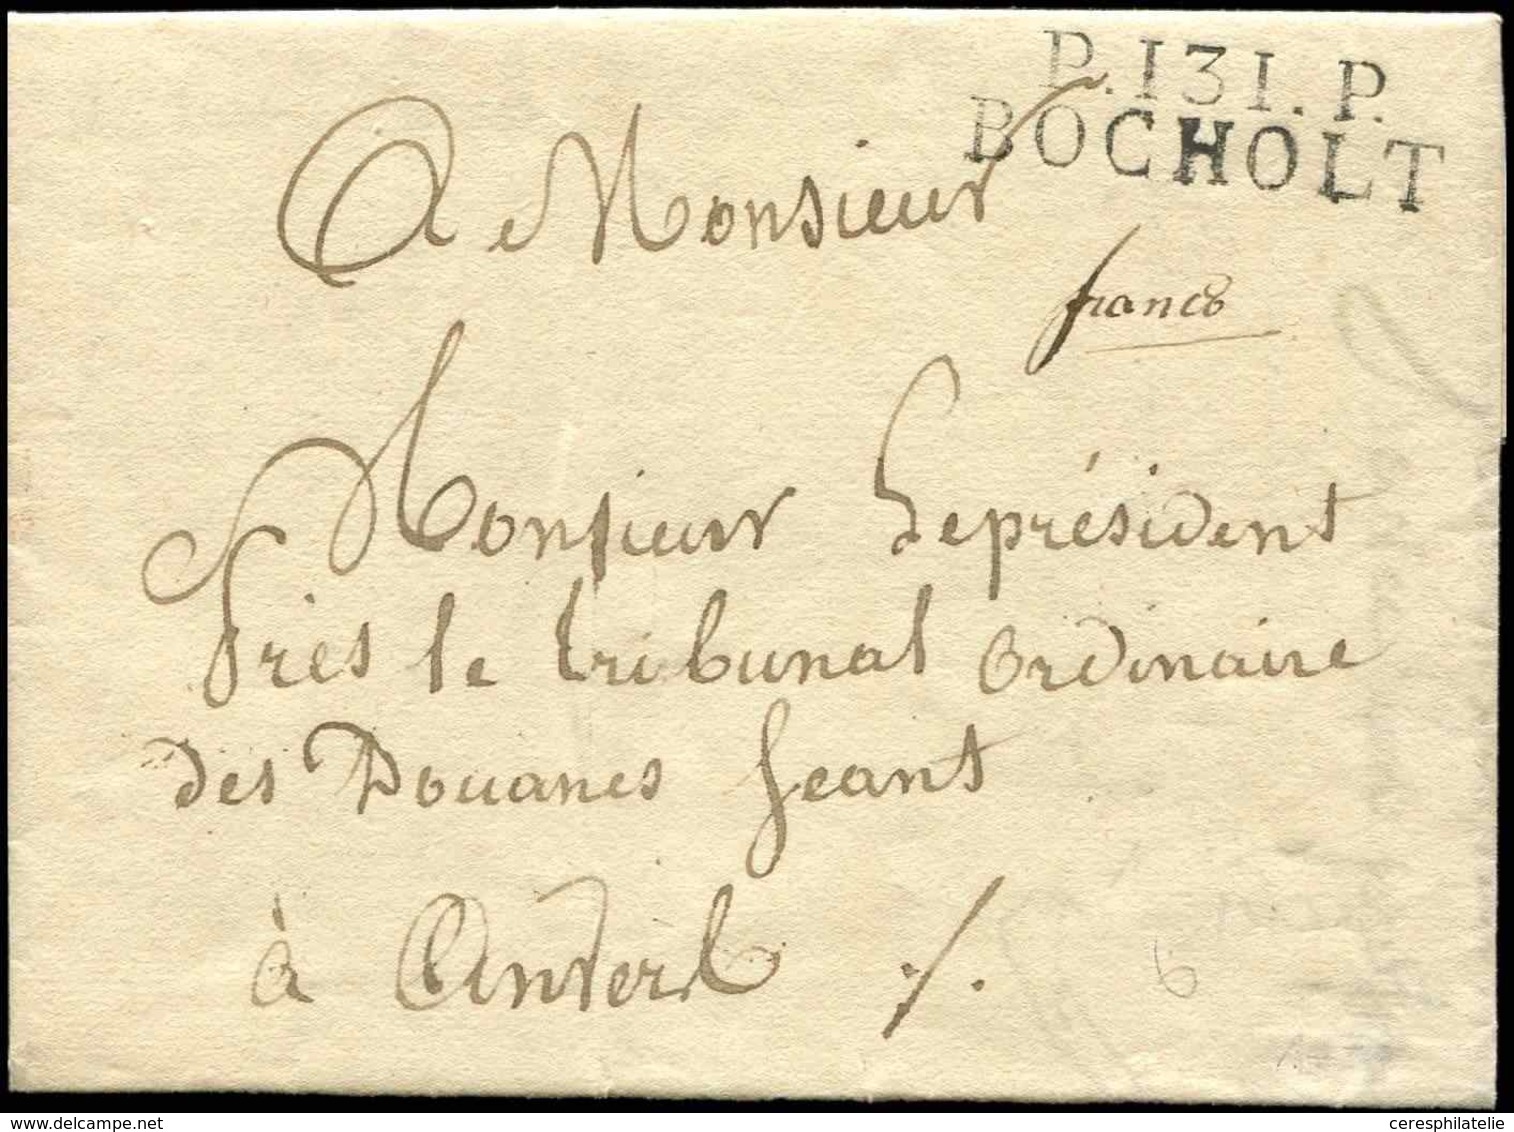 P.131.P.
BOCHOLT
A Monsieur
franco
Monsieur Le président
Près le tribunal Ordinaire
des Douanes Séant
à Anvers ./.
6
delcampe.net
ceresphilatelie